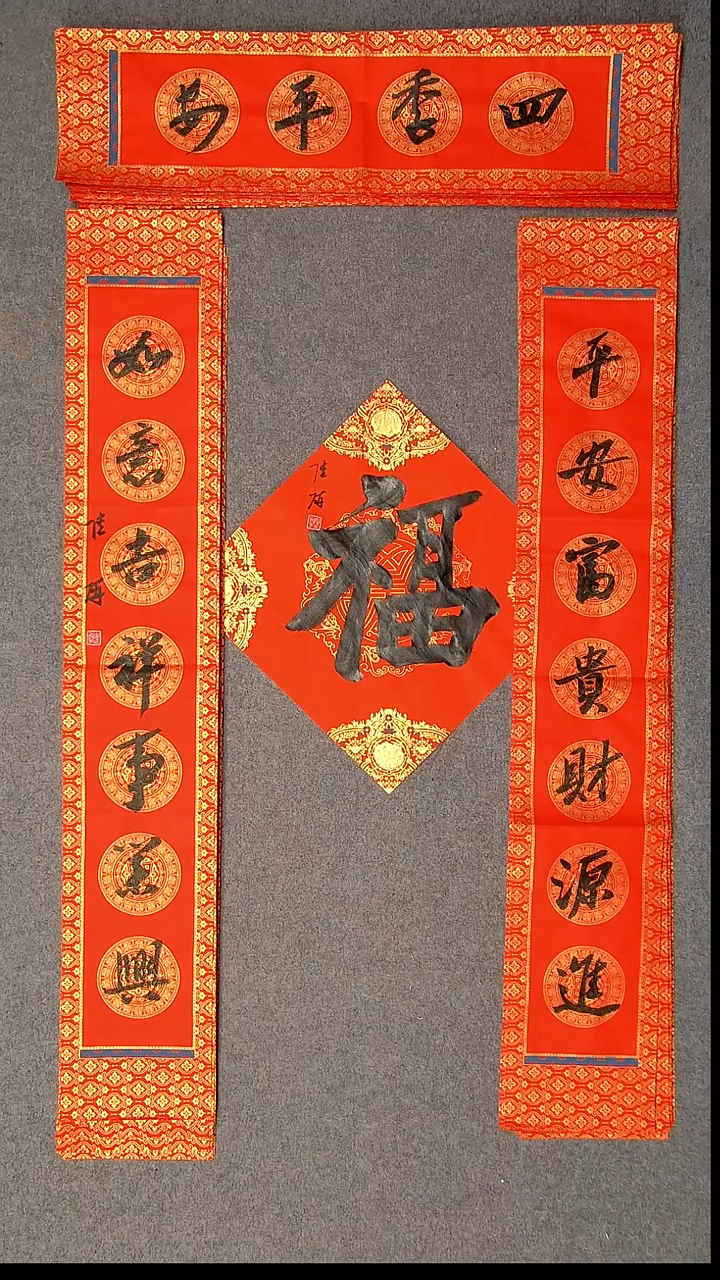 四季平安
平安富貴財源進
如意吉祥事業興
福
佳